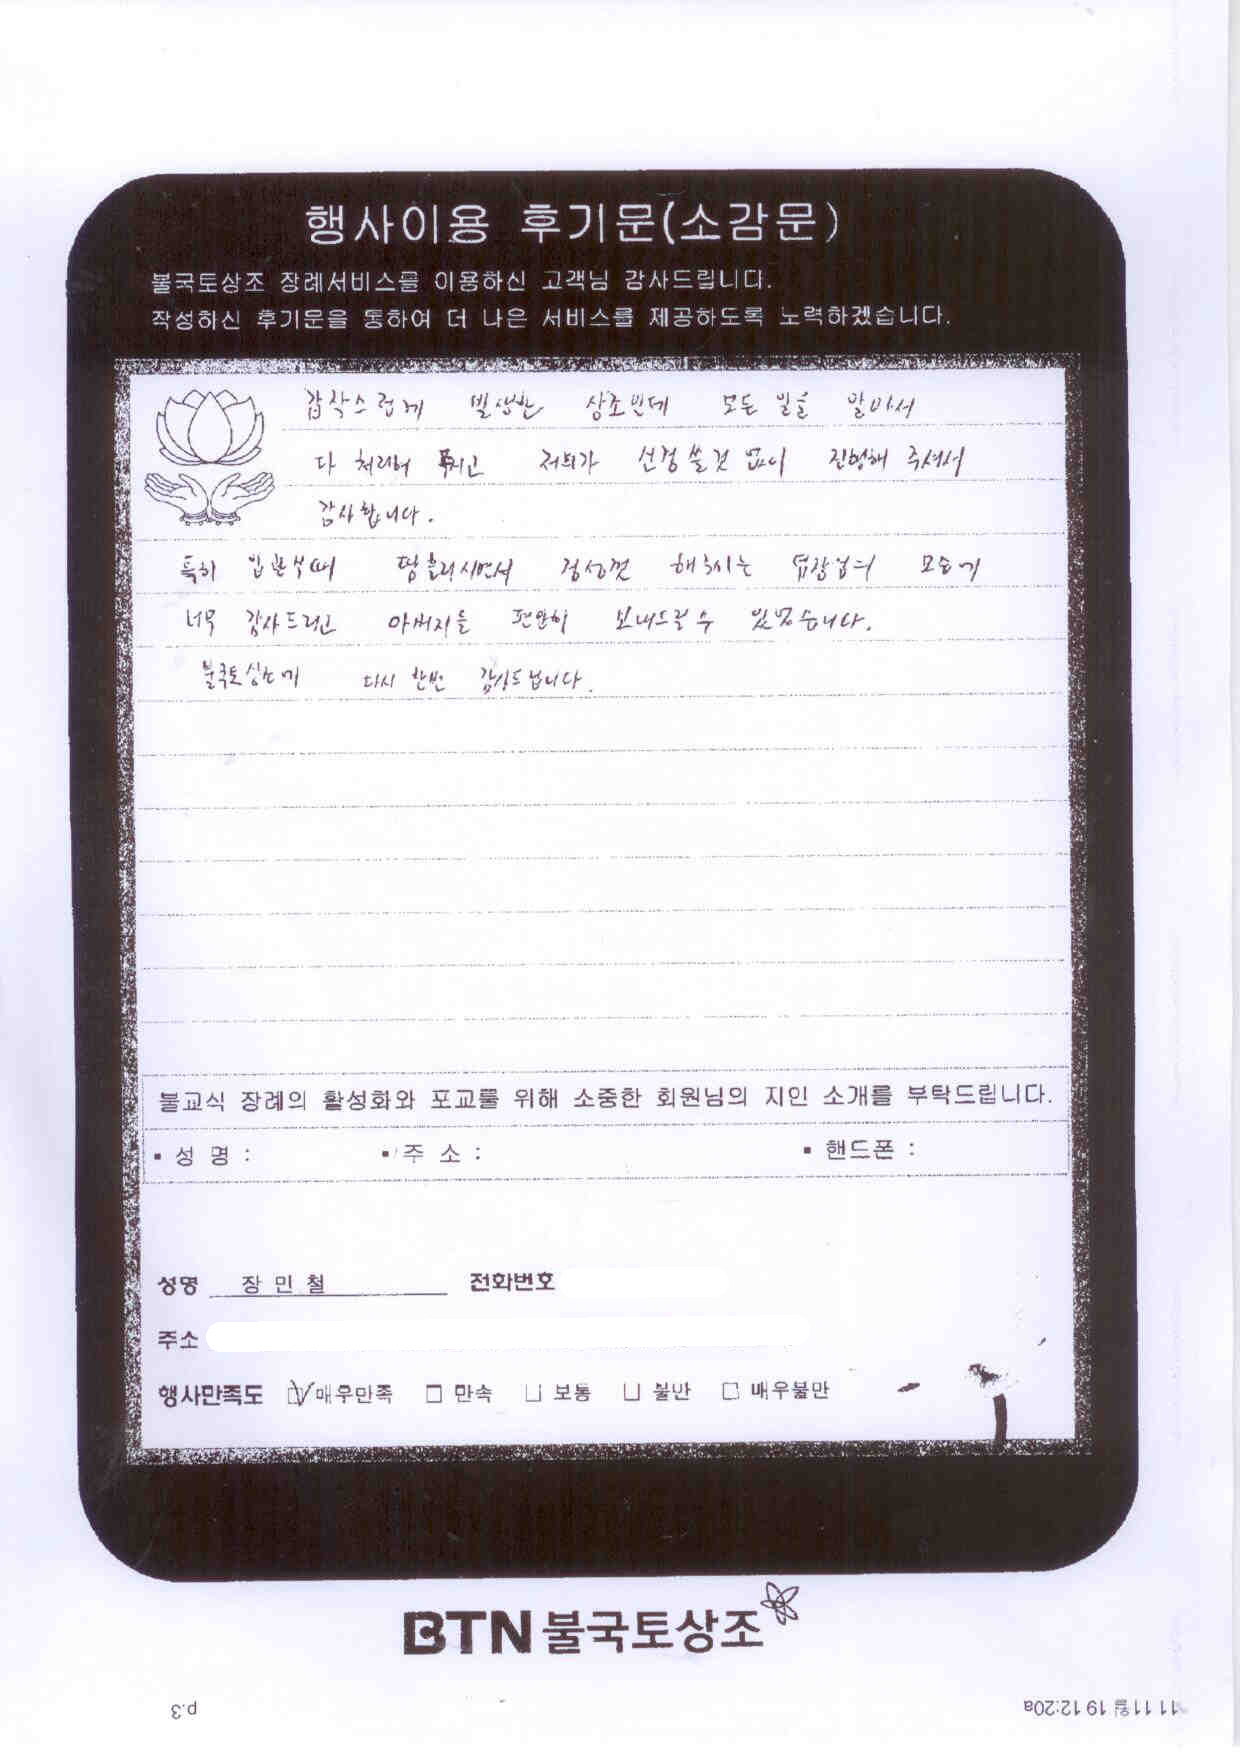 행사이용 후기문(소감문)
불국토상조 장례서비스를 이용하신 고객님 감사드립니다.
작성하신 후기문을 통하여 더 나은 서비스를 제공하도록 노력하겠습니다.
갑작스럽게 발생한 상조인데 모든 일을 알아서
다 처리해 주시고 저희가 신경 쓸것 없이 진행해 주셔서
감사합니다.
특히 입관식때 땀흘리시면서 정성껏 해주시는 모습에
너무 감사드리고 아버지를 편안히 보내드릴 수 있었습니다.
불국토상조에 다시 한번 감사드립니다.
불교식 장례의 활성화와 포교를 위해 소중한 회원님의 지인 소개를 부탁드립니다.
▪ 성 명 : ▪ 주 소 : ▪ 핸드폰 :
성명 장 민 철 전화번호
주소
행사만족도 ☑매우만족 □ 만족 □ 보통 □ 불만 □ 매우불만
BTN불국토상조
p.3 11 11월 19 12:20a